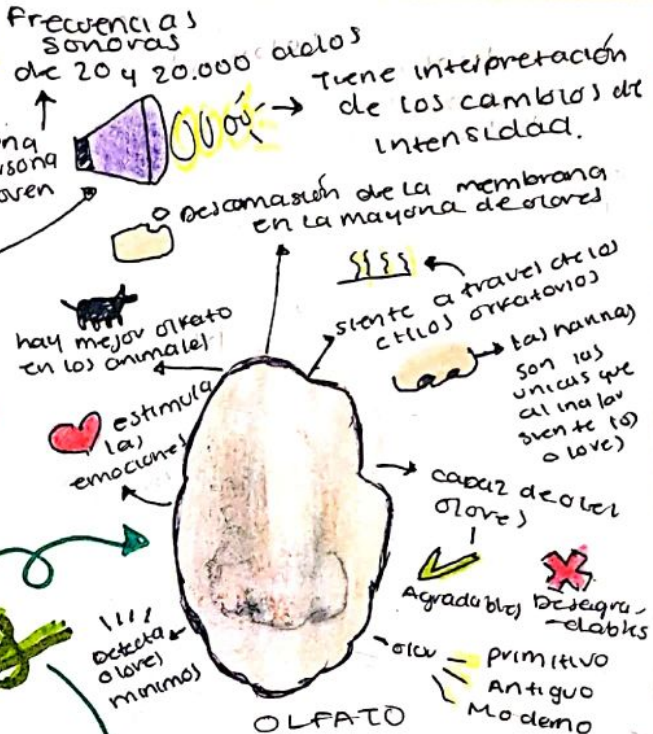 Frecuencias
sonoras
de 20 y 20.000 ciclos
Tiene interpretación
de los cambios de
intensidad.
oven
Descamasión de la membrana
en la mayoria de olores
siente a travel de los
cilios olfatorios
hay mejor olfato
en los animales
las narinas
son las
unicas que
al inalar
siente los
olores
estimula
las
emociones
capaz de oler
olores
Agradables
Desagra-
dables
Detecta
olores
minimos
olor
primitivo
Antiguo
Moderno
OLFATO